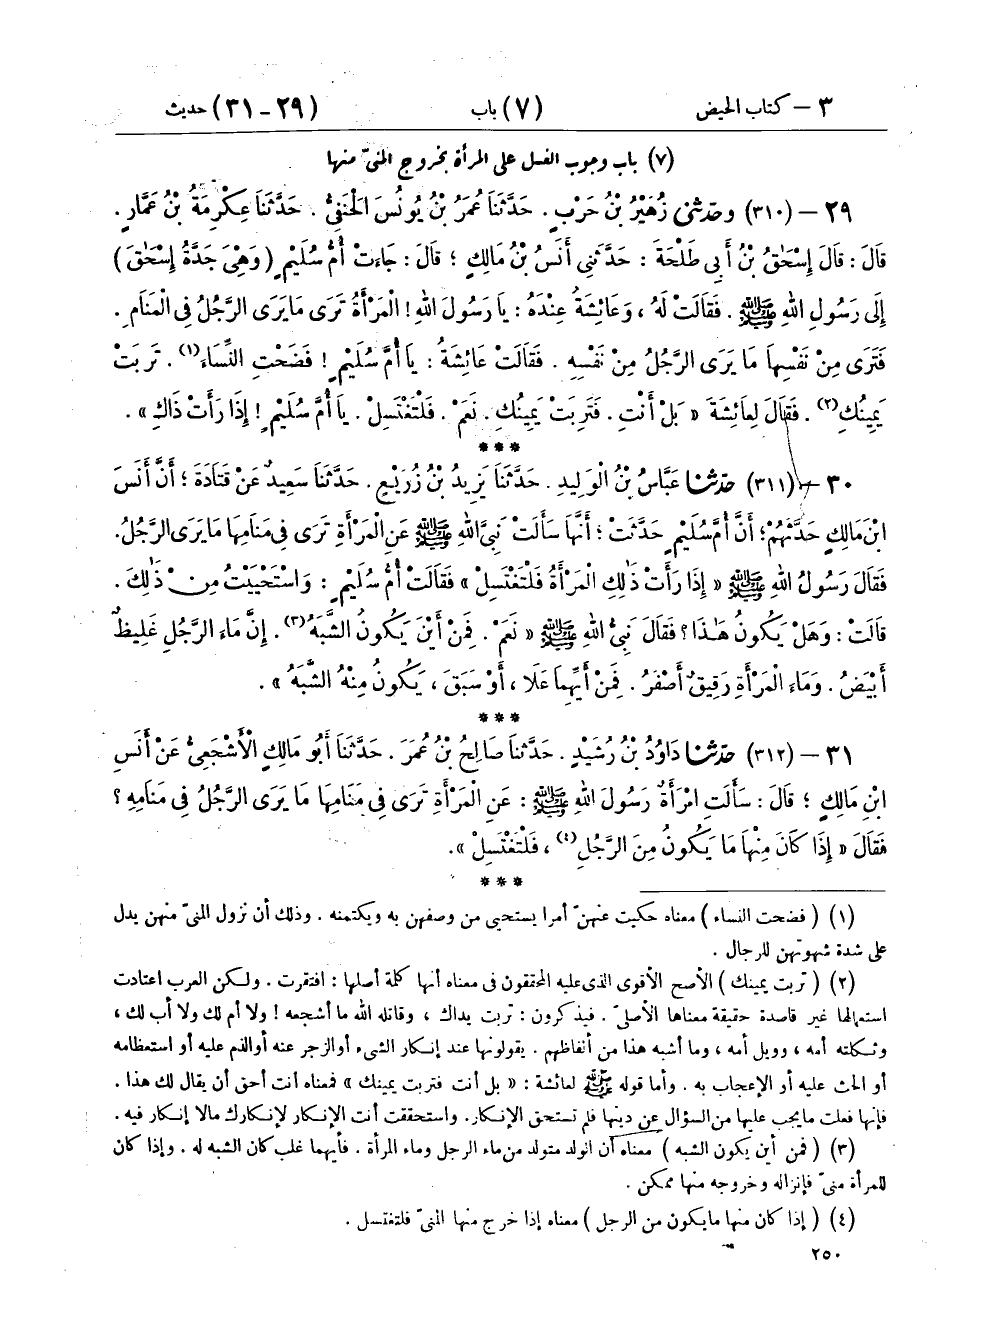 ٣ – كتاب الحيض (٧) باب (٢٩ – ٣١) حديث
(٧) باب وجوب الغسل على المرأة بخروج المنىّ منها
٢٩ – (٣١٠) وحدثنى زُهَيْرُ بْنُ حَرْبٍ . حَدَّثَنَا عُمَرُ بْنُ يُونُسَ الْحَنَفِىُّ . حَدَّثَنَا عِكْرِمَةُ بْنُ عَمَّارٍ .
قَالَ : قَالَ إِسْحَٰقُ بْنُ أَبِى طَلْحَةَ : حَدَّثَنِى أَنَسُ بْنُ مَالِكٍ ؛ قَالَ : جَاءَتْ أُمُّ سُلَيْمٍ ( وَهِىَ جَدَّةُ إِسْحَٰقَ )
إِلَى رَسُولِ اللهِ ﷺ . فَقَالَتْ لَهُ ، وَعَائِشَةُ عِنْدَهُ : يَا رَسُولَ اللهِ ! الْمَرْأَةُ تَرَى مَا يَرَى الرَّجُلُ فِى الْمَنَامِ .
فَتَرَى مِنْ نَفْسِهَا مَا يَرَى الرَّجُلُ مِنْ نَفْسِهِ . فَقَالَتْ عَائِشَةُ : يَا أُمَّ سُلَيْمٍ ! فَضَحْتِ النِّسَاءَ (١) . تَرِبَتْ
يَمِينُكِ (٢) . فَقَالَ لِعَائِشَةَ « بَلْ أَنْتِ . فَتَرِبَتْ يَمِينُكِ . نَعَمْ . فَلْتَغْتَسِلْ . يَا أُمَّ سُلَيْمٍ ! إِذَا رَأَتْ ذَاكِ » .
***
٣٠ – (٣١١) حدثنا عَبَّاسُ بْنُ الْوَلِيدِ . حَدَّثَنَا يَزِيدُ بْنُ زُرَيْعٍ . حَدَّثَنَا سَعِيدٌ عَنْ قَتَادَةَ ؛ أَنَّ أَنَسَ
ابْنَ مَالِكٍ حَدَّثَهُمْ ؛ أَنَّ أُمَّ سُلَيْمٍ حَدَّثَتْ ؛ أَنَّهَا سَأَلَتْ نَبِىَّ اللهِ ﷺ عَنِ الْمَرْأَةِ تَرَى فِى مَنَامِهَا مَا يَرَى الرَّجُلُ.
فَقَالَ رَسُولُ اللهِ ﷺ « إِذَا رَأَتْ ذَٰلِكِ الْمَرْأَةُ فَلْتَغْتَسِلْ » فَقَالَتْ أُمُّ سُلَيْمٍ : وَاسْتَحْيَيْتُ مِنْ ذَٰلِكَ .
قَالَتْ : وَهَلْ يَكُونُ هَٰذَا ؟ فَقَالَ نَبِىُّ اللهِ ﷺ « نَعَمْ . فَمِنْ أَيْنَ يَكُونُ الشَّبَهُ (٣) . إِنَّ مَاءَ الرَّجُلِ غَلِيظٌ
أَبْيَضُ . وَمَاءَ الْمَرْأَةِ رَقِيقٌ أَصْفَرُ . فَمِنْ أَيِّهِمَا عَلَا ، أَوْ سَبَقَ ، يَكُونُ مِنْهُ الشَّبَهُ » .
***
٣١ – (٣١٢) حدثنا دَاوُدُ بْنُ رُشَيْدٍ . حَدَّثَنَا صَالِحُ بْنُ عُمَرَ . حَدَّثَنَا أَبُو مَالِكٍ الْأَشْجَعِىُّ عَنْ أَنَسِ
ابْنِ مَالِكٍ ؛ قَالَ : سَأَلَتِ امْرَأَةٌ رَسُولَ اللهِ ﷺ : عَنِ الْمَرْأَةِ تَرَى فِى مَنَامِهَا مَا يَرَى الرَّجُلُ فِى مَنَامِهِ ؟
فَقَالَ « إِذَا كَانَ مِنْهَا مَا يَكُونُ مِنَ الرَّجُلِ (٤) ، فَلْتَغْتَسِلْ ».
***
(١) ( فضحت النساء ) معناه حكيت عنهنّ أمرا يستحيى من وصفهن به ويكتمنه . وذلك أن نزول المنىّ منهن يدل
على شدة شهوتهن للرجال .
(٢) ( تربت يمينك ) الأصح الأقوى الذى عليه المحققون فى معناه أنها كلمة أصلها : افتقرت . ولكن العرب اعتادت
استعمالها غير قاصدة حقيقة معناها الأصلىّ . فيذكرون : تربت يداك ، وقاتله الله ما أشجعه ! ولا أم لك ولا أب لك ،
وثكلته أمه ، وويل أمه ، وما أشبه هذا من ألفاظهم . يقولونها عند إنكار الشىء أو الزجر عنه أو الذم عليه أو استعظامه
أو الحث عليه أو الإعجاب به . وأما قوله ﷺ لعائشة : « بل أنت فتربت يمينك » فمعناه أنت أحق أن يقال لك هذا .
فإنها فعلت ما يجب عليها من السؤال عن دينها فلم تستحق الإنكار. واستحققت أنت الإنكار لإنكارك مالا إنكار فيه .
(٣) ( فمن أين يكون الشبه ) معناه أن الولد متولد من ماء الرجل وماء المرأة . فأيهما غلب كان الشبه له . وإذا كان
للمرأة منىّ فإنزاله وخروجه منها ممكن .
(٤) ( إذا كان منها ما يكون من الرجل ) معناه إذا خرج منها المنىّ فلتغتسل .
٢٥٠